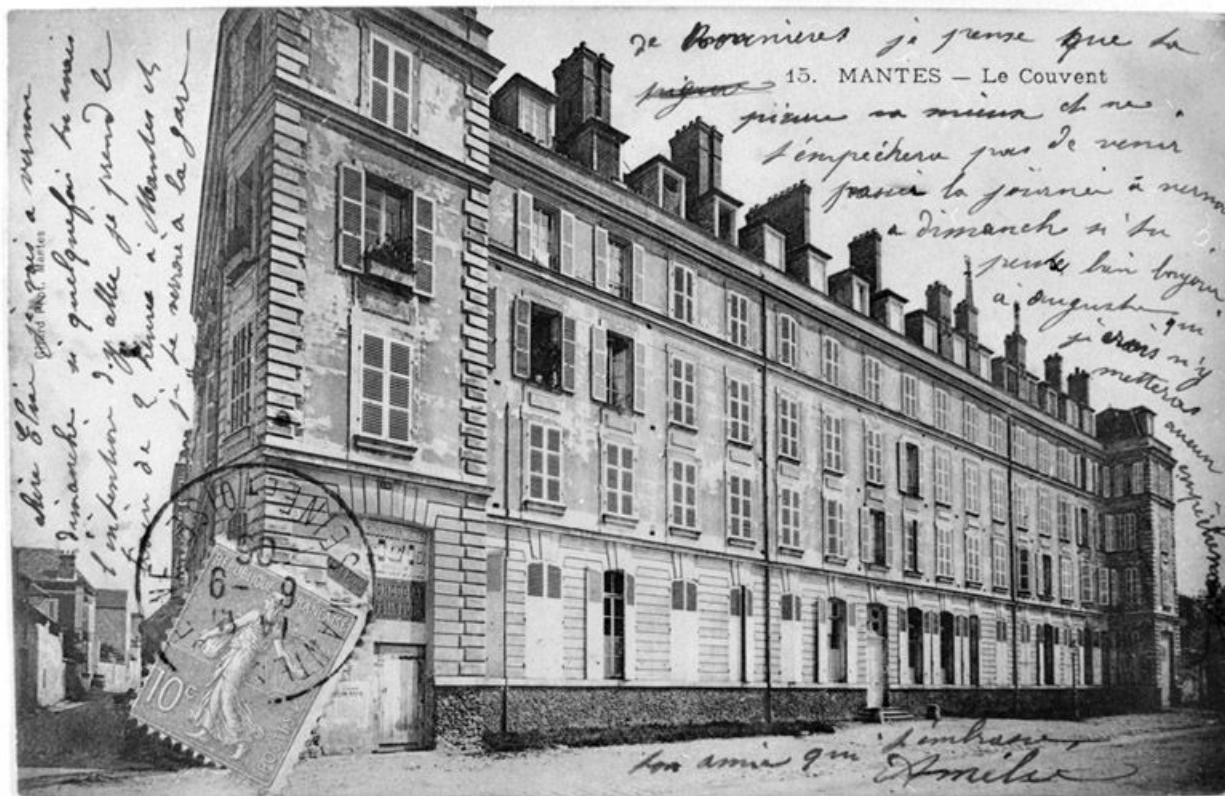 15. MANTES — Le Couvent
chère je vais a vernon
dimanche si quelquefois tu avais
l'intention d'y aller je prend le
train de 2 heures à Mantes et
je te verrai à la gare
de je pense que ta
va mieux et ne
t'empéchera pas de venir
passer la journée à
a dimanche si tu
peux bien bonjour
a auguste qui
je crois n'y
metteras
aucun
empêchement
ton amie qui t'embrasse
Amélie
Mantes
10c
6-9